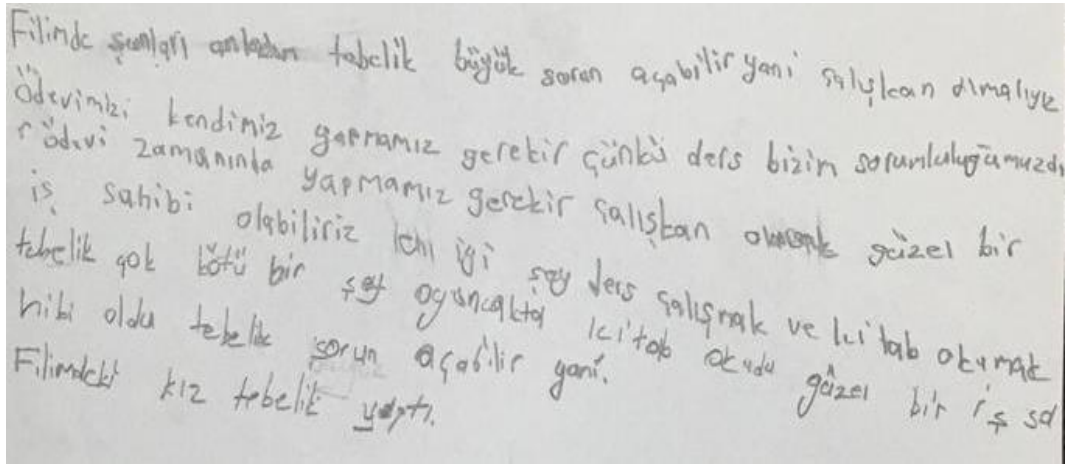 Filimde şunları anladım tabelik büyük soran açabilir yani çalışkan olmalıyız
Ödevimizi kendimiz yapmamız gerekir çünkü ders bizim sorumluluğumuzdı
r ödevi zamanında yapmamız gerekir çalışkan olursak güzel bir
iş sahibi olabiliriz iyi şey ders çalışmak ve kitab okumak
tebelik çok kötü bir şey oyuncakta kitab okudu güzel bir iş sa
hibi oldu tebelik sorun açabilir yani.
Filimdeki kız tebelik yaptı.